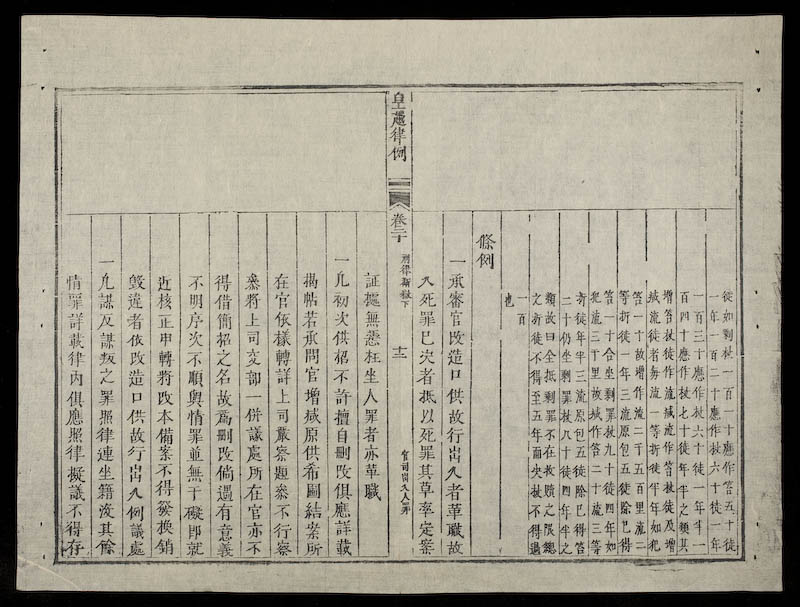 徒如剩杖一百一十應作笞五十徒
一年一百二十應作杖六十徒一年
一百三十應作杖六十徒一年半一
百四十應作杖七十徒年半之類其
增笞杖徒作流減流作笞杖徒及增
減流徒者每流一等折徒半年如犯
笞一十故增作流二千五百里流二
等折徒一年三流原包五徒除已得
笞一十合坐剩罪杖九十徒四年如
犯流三千里故減作笞二十流三等
折徒年半三流原包五徒除已得笞
二十仍坐剩罪杖八十徒四年半之
類故曰全抵剩罪不在收贖之限總
之折徒不得至五年面決杖不得過
一百
也
條例
一承審官改造口供故行出入者革職故
入死罪已決者抵以死罪其草率定案
皇越律例
卷二十
刑律斷獄下
十二
官司出入人罪
証據無憑枉坐人罪者亦革職
一凡初次供招不許擅自刪改俱應詳載
揭帖若承問官增減原供希圖結案所
在官依樣轉詳上司嚴察題參不行察
參將上司交部一併議處所在官亦不
得借簡招之名故為刪改倘遇有意義
不明序次不順與情罪並無干礙即就
近核正申轉將改本備案不得發換銷
毀違者依改造口供故行出入例議處
一凡謀反謀叛之罪照律連坐籍沒其餘
情罪詳載律內俱應照律擬議不得存